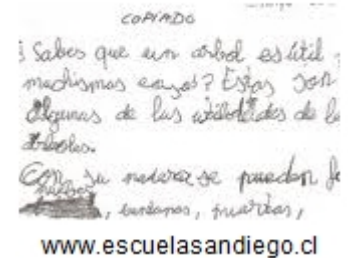 COPIADO
¿Sabes que un arbol es útil
muchismas cosas? Estas son
Algunas de las utilidades de l
árboles.
Con su madera se pueden
muebles
, bentanas, puertas,
www.escuelasandiego.cl